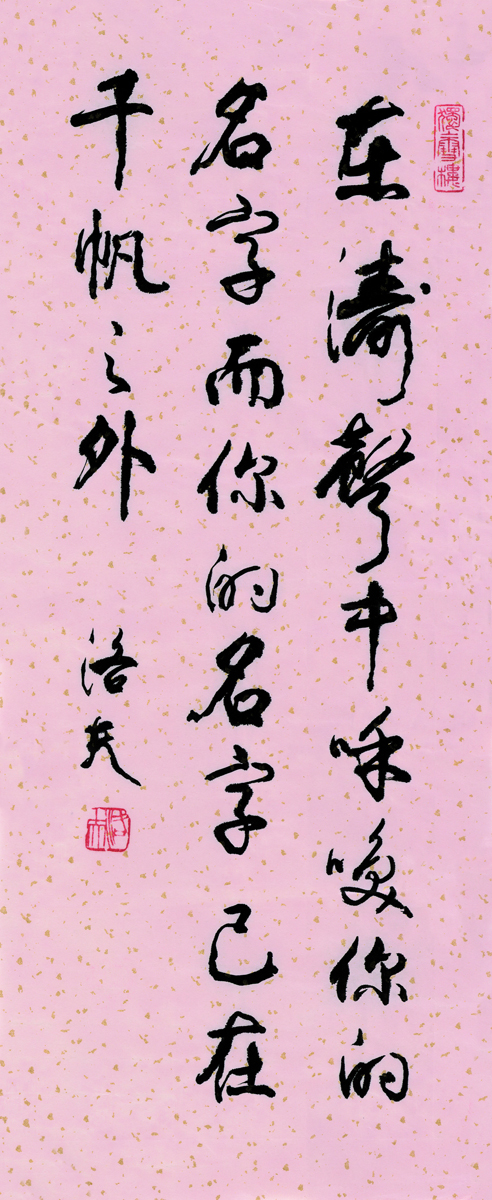 在濤聲中呼喚你的
名字而你的名字已在
千帆之外
洛夫
洛夫